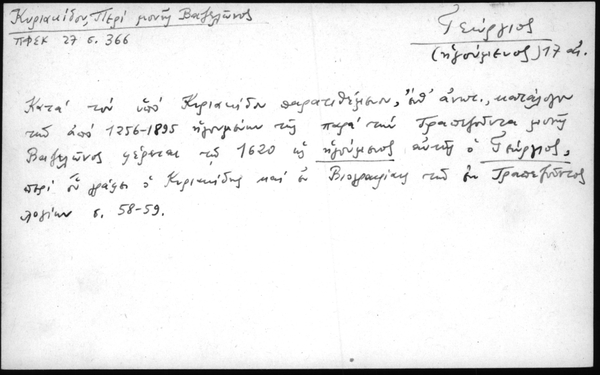 Κυριακίδου Περί μονῆς Βαζελῶνος
ΠΦΕΚ 27 σ. 366
Γεώργιος
(ἡγούμενος) 17 αἰ.
Κατά τόν ὑπό Κυριακίδου παρατιθέμενον, ἐνθ' ἀνωτ., κατάλογον
τῶν ἀπό 1256-1895 ἡγουμένων τῆς παρά τήν Τραπεζοῦντα μονῆς
Βαζελῶνος φέρεται τῷ 1620 ὡς ἡγούμενος αὐτῆς ὁ Γεώργιος,
περί οὗ γράφει ὁ Κυριακίδης καί ἐν Βιογραφίαις τῶν ἐκ Τραπεζοῦντος
λογίων σ. 58-59.